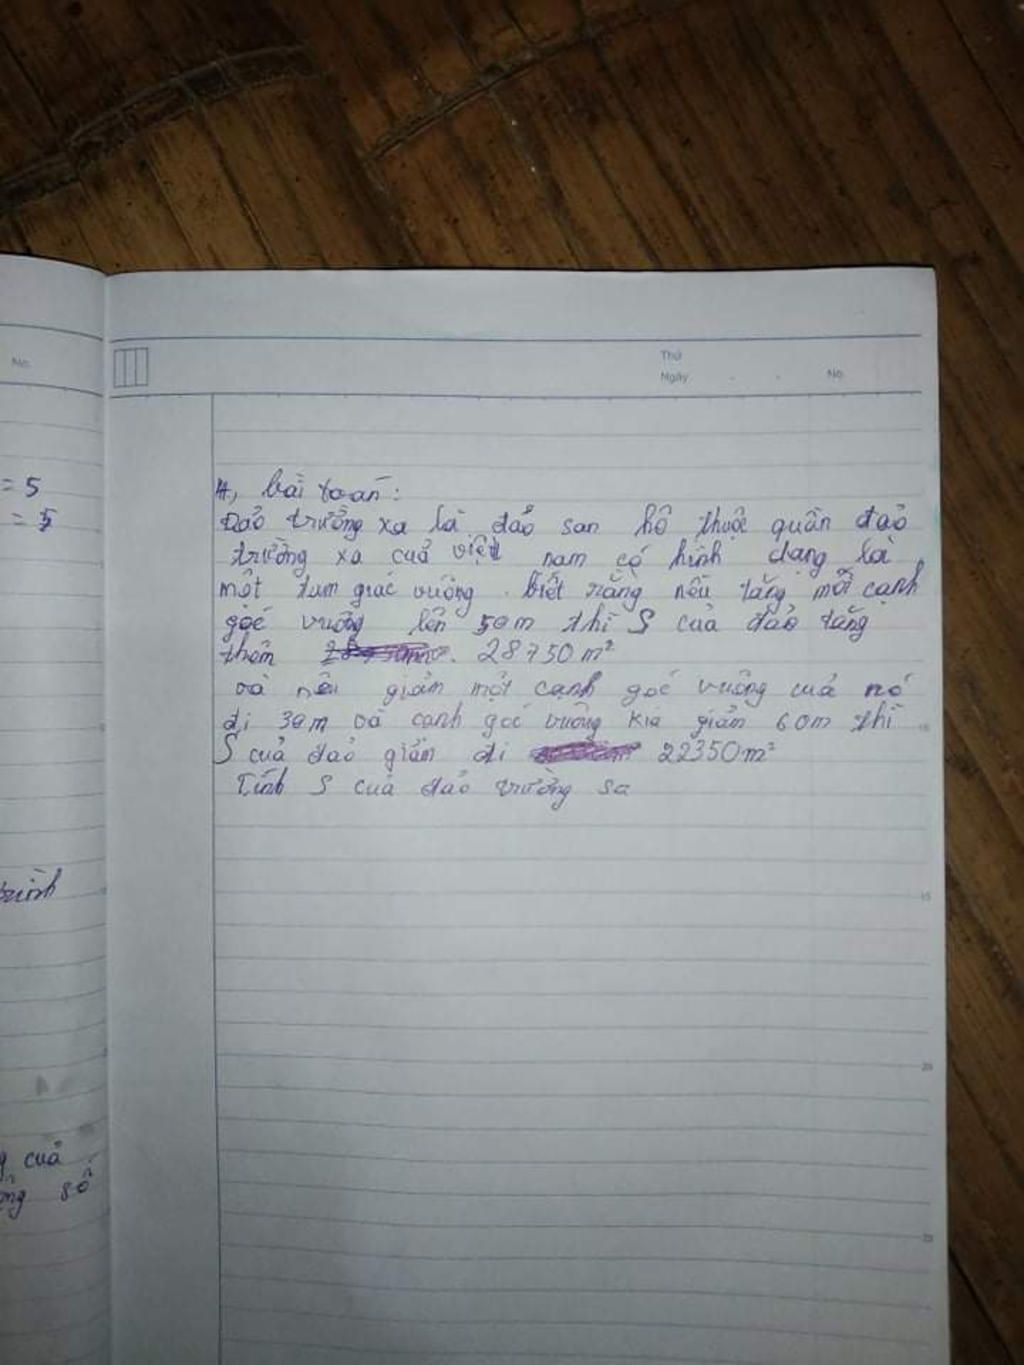 No
Thứ
Ngày
No
= 5
= 5
4, bài toán :
Đảo trường xa là đảo san hô thuộc quần đảo
trường xa cuả việt nam có hình dạng là
một tam giác vuông . biết rằng nếu tăng mỗi cạnh
góc vuông lên 50m thì S của đảo tăng
thêm 28750m²
và nếu giảm một cạnh góc vuông cuả nó
đi 30m và cạnh góc vuông kia giảm 60m thì
S cuả đảo giảm đi 22350m²
Tính S cuả đảo trường sa
trình
10
15
20
25
g cuả
ổng số